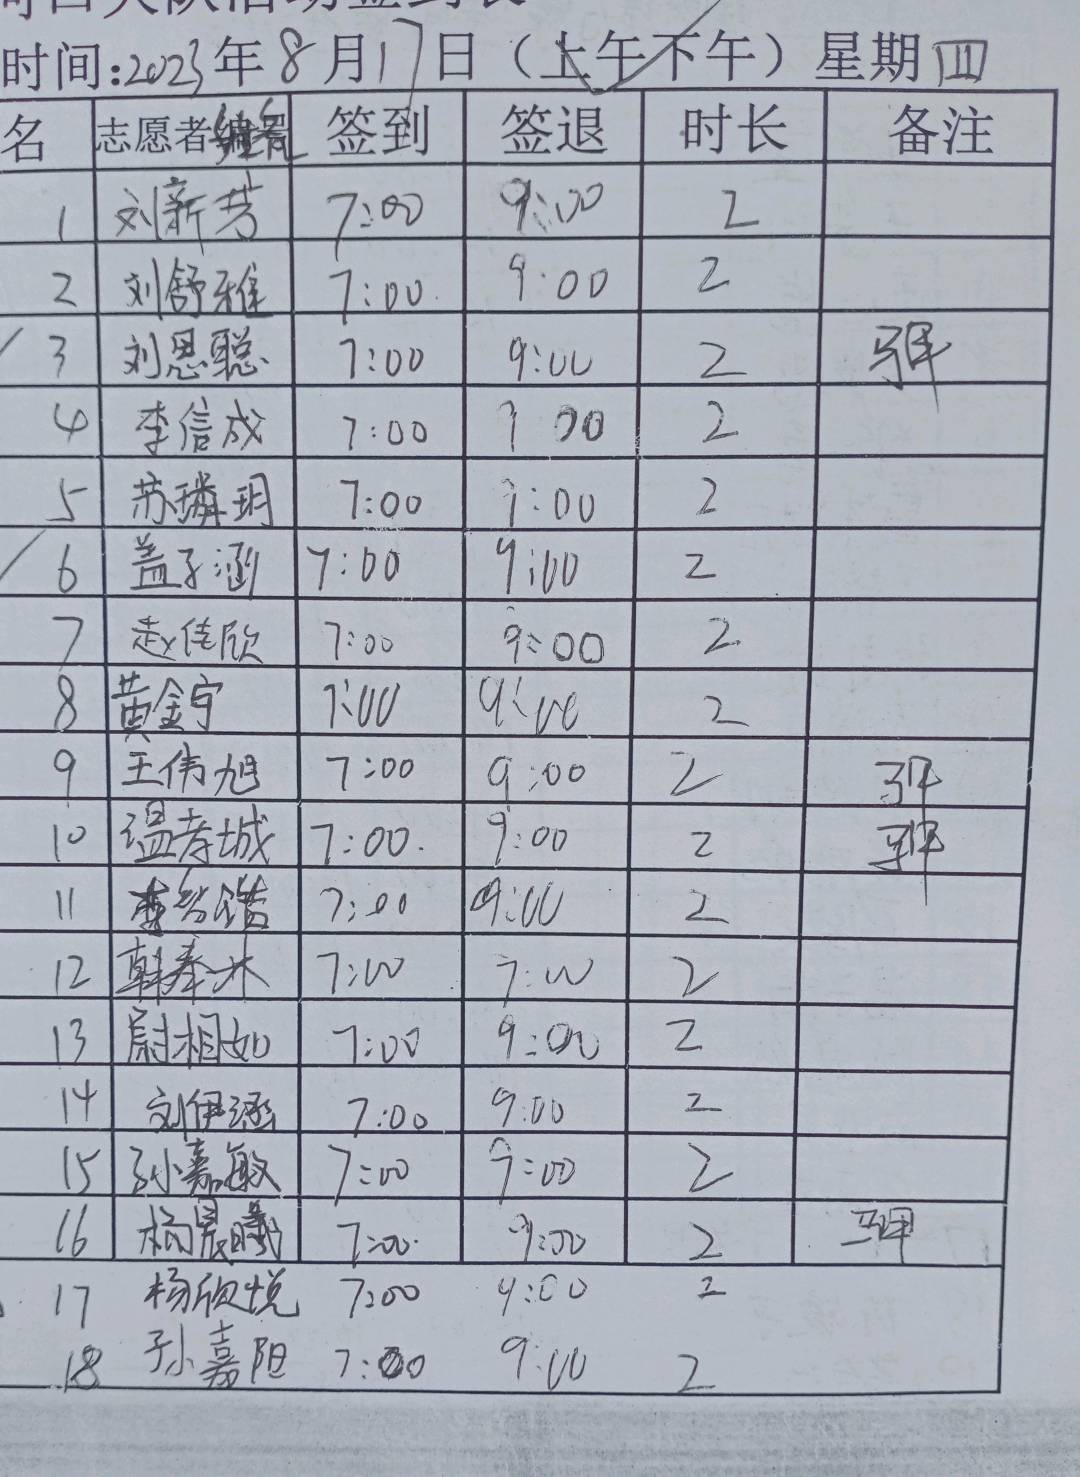 时间:2023年8月17日（上午下午）星期四
名 志愿者姓名 签到 签退 时长 备注
1 刘新芳 7:00 9:00 2
2 刘舒雅 7:00 9:00 2
3 刘恩聪 7:00 9:00 2 马甲
4 李信成 7:00 9:00 2
5 苏璘玥 7:00 9:00 2
6 盖子涵 7:00 9:00 2
7 赵佳欣 7:00 9:00 2
8 黄金宁 7:00 9:00 2
9 王伟旭 7:00 9:00 2 马甲
10 温孝城 7:00 9:00 2 马甲
11 7:00 9:00 2
12 韩奉林 7:00 9:00 2
13 尉相如 7:00 9:00 2
14 刘伊涵 7:00 9:00 2
15 孙嘉敏 7:00 9:00 2
16 杨晨曦 7:00 9:00 2 马甲
17 杨欣悦 7:00 9:00 2
18 孙嘉阳 7:00 9:00 2